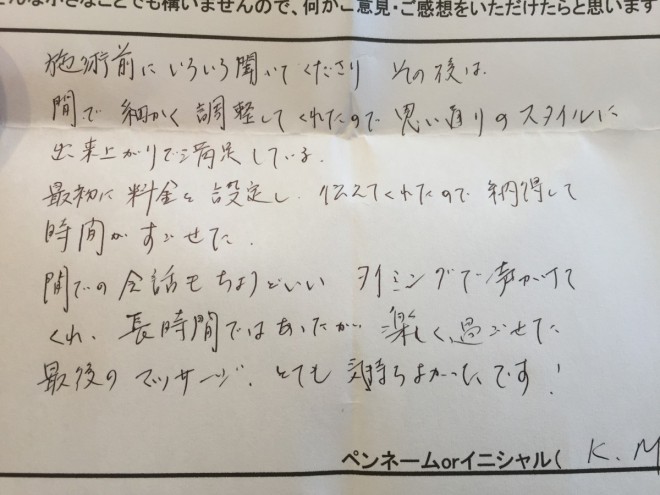 んな小さなことでも構いませんので、何かご意見・ご感想をいただけたらと思います
施術前にいろいろ聞いてくださり その後は
間で 細かく 調整してくれたので 思い通りのスタイルに
出来上がりで満足している.
最初に 料金を 設定し. 伝えてくれたので 納得して
時間がすごせた.
間での会話もちょうどいい タイミングで声かけて
くれ. 長時間ではあったが 楽しく過ごせた
最後の マッサージ. とても 気持ちよかったです!
ペンネームorイニシャル( K.M